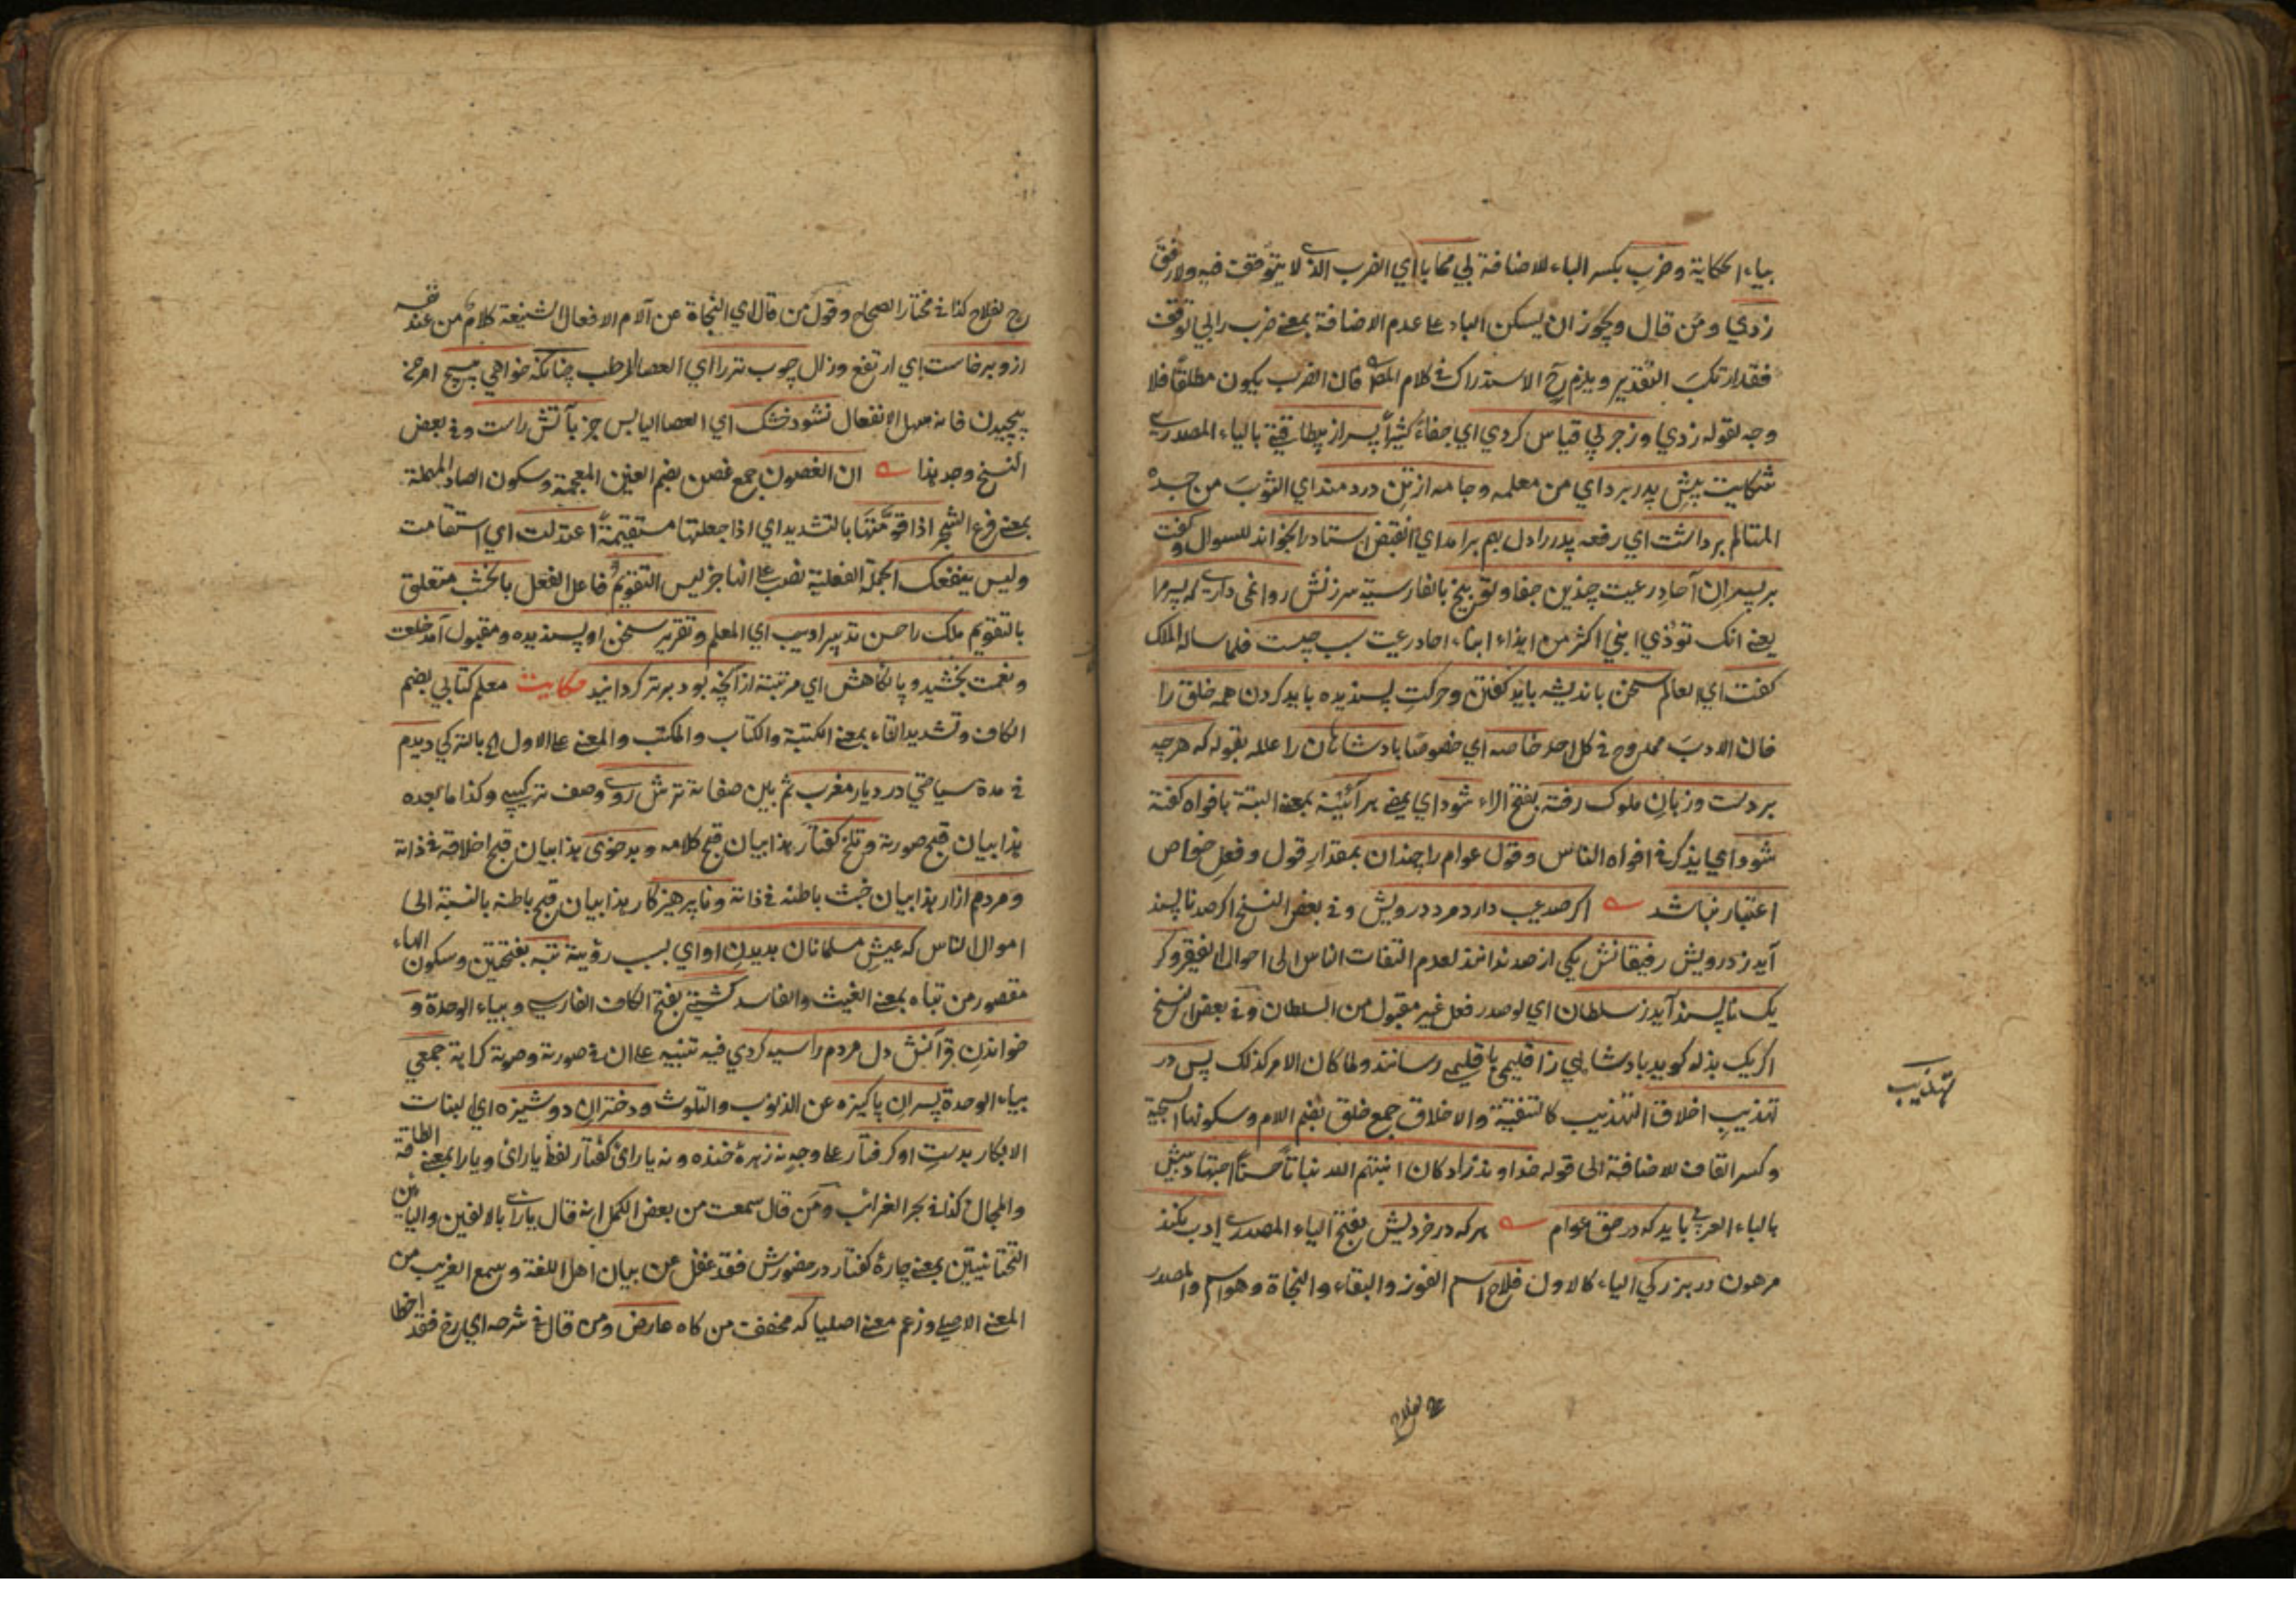 بياء الحكاية وضرب بكسر الباء للاضافة بي محابا اي الضرب الذي لا يتوقف فيه ولا رفق
زدي ومن قال ويجوز ان يسكن الباء على عدم الاضافة بمعنى ضرب را بي توقف
فقد ارتكب التقدير ويلزم ح الاستدراك في كلام المص فان الضرب يكون مطلقا فلا
وجه لقوله زدي وزجر بي قياس كردي اي جفاء كثيرا پسر از بيطاقتي بالياء المصدري
شكايت پيش پدر برد اي من معلمه وجامه از تن دردمند اي الثوب من جسده
المتالم برداشت اي رفعه پدر را دل بهم برامد اي انقبض استاد را بخواند للسوال وكفت
بر پسران آحاد رعيت چندين جفا وتوبيخ بالفارسية سرزنش روا نمى داري كه پسر مرا
يعني انك تؤذي ابني اكثر من ايذاء ابناء احاد رعيت سبب چيست فلما ساله الملك
كفت اي العالم سخن بانديشه بايد كفتن وحركت پسنديده بايد كردن همه خلق را
فان الادب ممدوح في كل احد خاصه اي خصوصا پادشاهان را علله بقوله كه هرچه
بر دست وزبان ملوك رفته بفتح الراء شود اي يمضي هر آئينه بمعنى البتة بافواه كفته
شود اي يذكر في افواه الناس وقول عوام را چندان بمقدار قول وفعل خواص
اعتبار نباشد اكر صد عيب دارد مرد درويش وفي بعض النسخ اكر صد ناپسند
آيد ز درويش رفيقانش يكي از صد ندانند لعدم التفات الناس الى احوال الفقير وكر
يك ناپسند آيد ز سلطان اي لو صدر فعل غير مقبول من السلطان وفي بعض النسخ
اكر يك بذله كويد پادشاهي ز اقليمى باقليمي رسانند ولما كان الامر كذلك پس در
تهذيب اخلاق التهذيب كالتنقية والاخلاق جمع خلق بضم اللام وسكونها السجية
وكسر القاف للاضافة الى قوله خداوند زاد كان انبتهم الله نباتا حسنا اجتهاد بيش
بالباء العربي بايد كه در حق عوام هر كه در خرديش بفتح الياء المصدري ادب نكنند
مرهون در بزركي الياء كالاول فلاح اسم الفوز والبقاء والنجاة وهو اسم والمصدر
تهذيب
رح لفلاح كذا في مختار الصحاح وقول من قال اي النجاة عن آلام الافعال الشنيعة كلام من عند نفسه
از و برخاست اي ارتفع وزال چوب تر را اي العصا الرطب چنانكه خواهي پيچ امر من
پيچيدن فانه سهل الانفعال نشود خشك اي العصا اليابس جز بآتش راست وفي بعض
النسخ وجد هذا ان الغصون جمع غصن بضم الغين المعجمة وسكون الصاد المهملة
بمعنى فرع الشجر اذا قومتها بالتشديد اي اذا جعلتها مستقيمة اعتدلت اي استقامت
وليس ينفعك الجملة الفعلية نصب على انها خبر ليس التقويم فاعل الفعل بالخشب متعلق
بالتقويم ملك را حسن تدبير اديب اي المعلم وتقرير سخن او پسنديده ومقبول آمد خلعت
ونعمت بخشيد و پايكاهش اي مرتبته از آنچه بود برتر كردانيد حكايت معلم كتابي بضم
الكاف وتشديد التاء بمعنى الكتبة والكتاب والمكتب والمعنى على الاول بالتركي ديدم
في مدة سياحتي در ديار مغرب ثم بين صفاته ترش روي وصف تركيبي وكذا ما بعده
هذا بيان قبح صورته وتلخ كفتار هذا بيان قبح كلامه وبدخوى هذا بيان قبح اخلاقه في ذاته
ومردم ازار هذا بيان خبث باطنه في ذاته وناپرهيزكار هذا بيان قبح باطنه بالنسبة الى
اموال الناس كه عيش مسلمانان بديدن او اي بسبب رؤيته تبه بفتحتين وسكون الهاء
مقصور من تباه بمعنى الغيث والفاسد كشتي بفتح الكاف الفارسي وبياء الوحدة و
خواندن قرآنش دل مردم را سيه كردي فيه تنبيه على ان في صورته وصوته كراهة جمعي
بياء الوحدة پسران پاكيزه عن الذنوب والتلوث ودختران دوشيزه اي البنات
الابكار بدست او كرفتار على وجه نه زهرۀ خنده ونه ياراى كفتار لفظ ياراى ويارا بمعنى الطاقة
والمجال كذا في بحر الغرائب ومن قال سمعت من بعض الكمل انه قال ياراي بالالفين واليائين
التحتانيتين بمعنى چارۀ كفتار در حضورش فقد غفل عن بيان اهل اللغة وسمع الغريب من
المعنى الاصلي وزعم معنى اصليا كه مخفف من كاه عارض ومن قال في شرحه اي رخ فقد اخطا